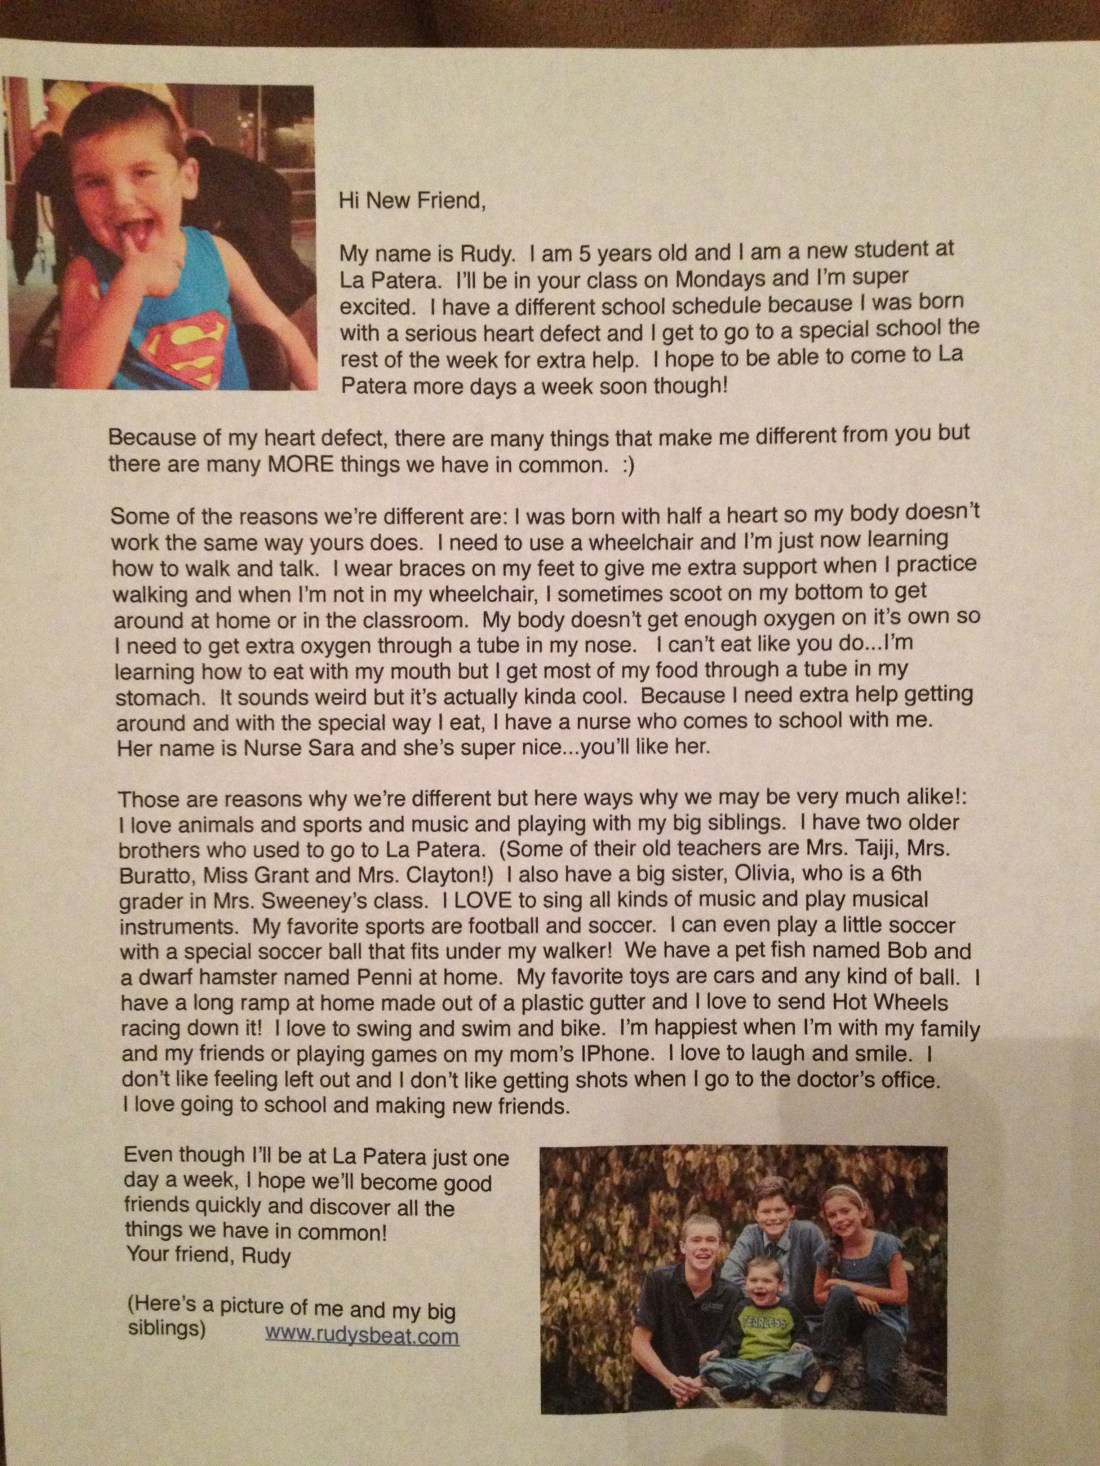 Hi New Friend,
My name is Rudy.  I am 5 years old and I am a new student at
La Patera.  I'll be in your class on Mondays and I'm super
excited.  I have a different school schedule because I was born
with a serious heart defect and I get to go to a special school the
rest of the week for extra help.  I hope to be able to come to La
Patera more days a week soon though!
Because of my heart defect, there are many things that make me different from you but
there are many MORE things we have in common.  :)
Some of the reasons we're different are: I was born with half a heart so my body doesn't
work the same way yours does.  I need to use a wheelchair and I'm just now learning
how to walk and talk.  I wear braces on my feet to give me extra support when I practice
walking and when I'm not in my wheelchair, I sometimes scoot on my bottom to get
around at home or in the classroom.  My body doesn't get enough oxygen on it's own so
I need to get extra oxygen through a tube in my nose.   I can't eat like you do...I'm
learning how to eat with my mouth but I get most of my food through a tube in my
stomach.  It sounds weird but it's actually kinda cool.  Because I need extra help getting
around and with the special way I eat, I have a nurse who comes to school with me.
Her name is Nurse Sara and she's super nice...you'll like her.
Those are reasons why we're different but here ways why we may be very much alike!:
I love animals and sports and music and playing with my big siblings.  I have two older
brothers who used to go to La Patera.  (Some of their old teachers are Mrs. Taiji, Mrs.
Buratto, Miss Grant and Mrs. Clayton!)  I also have a big sister, Olivia, who is a 6th
grader in Mrs. Sweeney's class.  I LOVE to sing all kinds of music and play musical
instruments.  My favorite sports are football and soccer.  I can even play a little soccer
with a special soccer ball that fits under my walker!  We have a pet fish named Bob and
a dwarf hamster named Penni at home.  My favorite toys are cars and any kind of ball.  I
have a long ramp at home made out of a plastic gutter and I love to send Hot Wheels
racing down it!  I love to swing and swim and bike.  I'm happiest when I'm with my family
and my friends or playing games on my mom's IPhone.  I love to laugh and smile.  I
don't like feeling left out and I don't like getting shots when I go to the doctor's office.
I love going to school and making new friends.
Even though I'll be at La Patera just one
day a week, I hope we'll become good
friends quickly and discover all the
things we have in common!
Your friend, Rudy
(Here's a picture of me and my big
siblings)          www.rudysbeat.com
FEARLESS